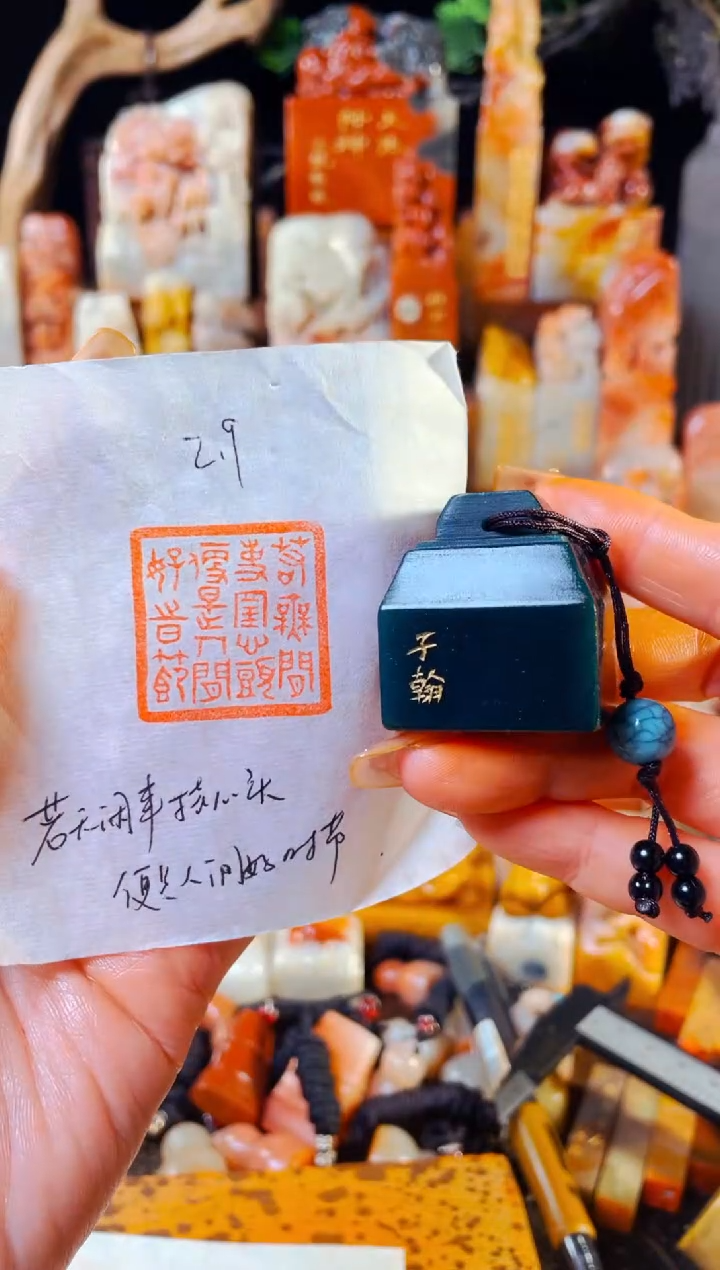 2.9
若無閒
事罣心頭
便是人間
好旹節
子翰
若无闲事挂心头
便是人间好时节.